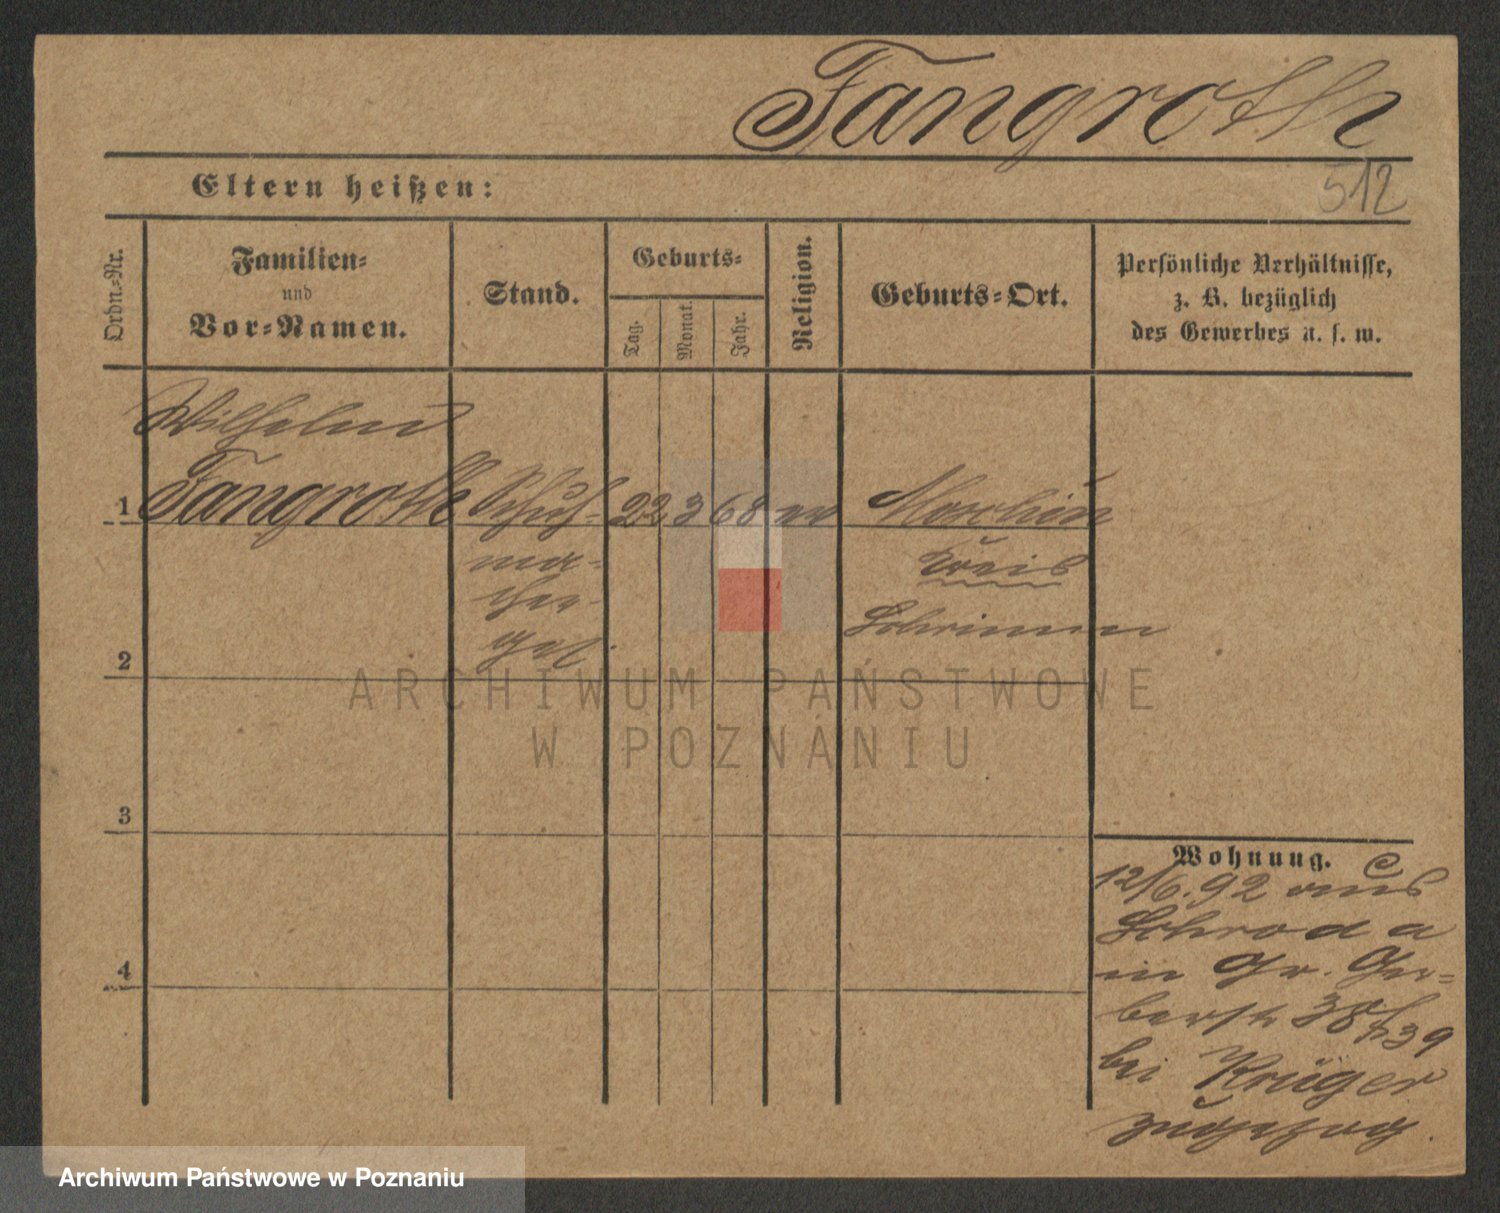 Fangroth
512
Eltern heißen:
Ordn.-Nr.
Familien-
und
Vor-Namen.
Stand.
Geburts-
Tag.
Monat.
Jahr.
Religion.
Geburts-Ort.
Persönliche Verhältnisse,
z. B. bezüglich
des Gewerbes u. s. w.
Wilhelm
1 Fangroth Schuh- 22 3 68 ev
ma-
cher
ges.
Kreis
Schrimm
2
3
4
Wohnung.
12/6. 92 aus
Schroda
in Gr. Ger-
berstr 38
39
bei Krüger
ARCHIWUM PAŃSTWOWE
W POZNANIU
Archiwum Państwowe w Poznaniu